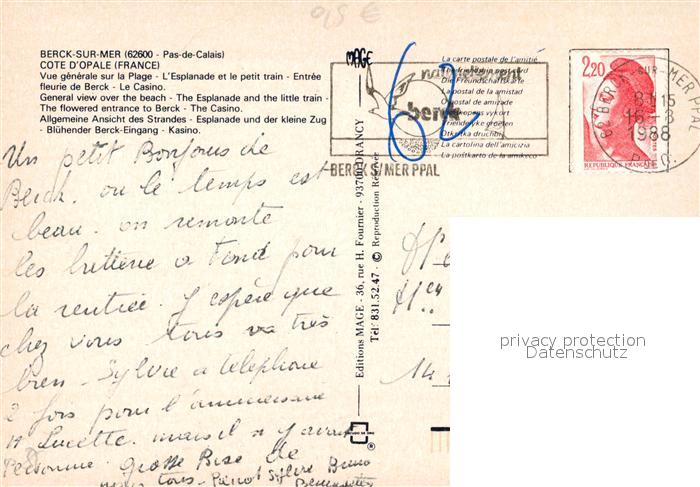 95 €
BERCK-SUR-MER (62600 - Pas-de-Calais)
COTE D'OPALE (FRANCE)
Vue générale sur la Plage - L'Esplanade et le petit train - Entrée
fleurie de Berck - Le Casino.
General view over the beach - The Esplanade and the little train -
The flowered entrance to Berck - The Casino.
Allgemeine Ansicht des Strandes - Esplanade und der kleine Zug
- Blühender Berck-Eingang - Kasino.
Un petit Bonjour de
Berck. ou le temps est
beau. on remonte
les batterie a Fond pour
la rentrée. J espère que
chez vous tous va très
bien - Sylvie a telephone
2 fois pour l'anniversaire
a Lucette. mais il n y avait
Personne. Grosse Bise de
nous tous - Sylvie Bruno
Bernadette
MAGE
Editions MAGE - 36, rue H. Fournier - 93700 DRANCY
Tél: 831.52.47 - © Reproduction Réservée
La carte postale de l'amitié
The friendship postcard
Die Freundschaftskarte
La postal de la amistad
O postal de amizade
Vriendkaart
Otkritka druchbi
La cartolina dell'amicizia
La postkarto de la amikeco
naturellement
berck
62
BERCK S/MER PPAL
2,20
REPUBLIQUE FRANÇAISE
62 BERCK-SUR-MER PPAL
8H15
16-8
1988
P.D.C.
14
privacy protection
Datenschutz